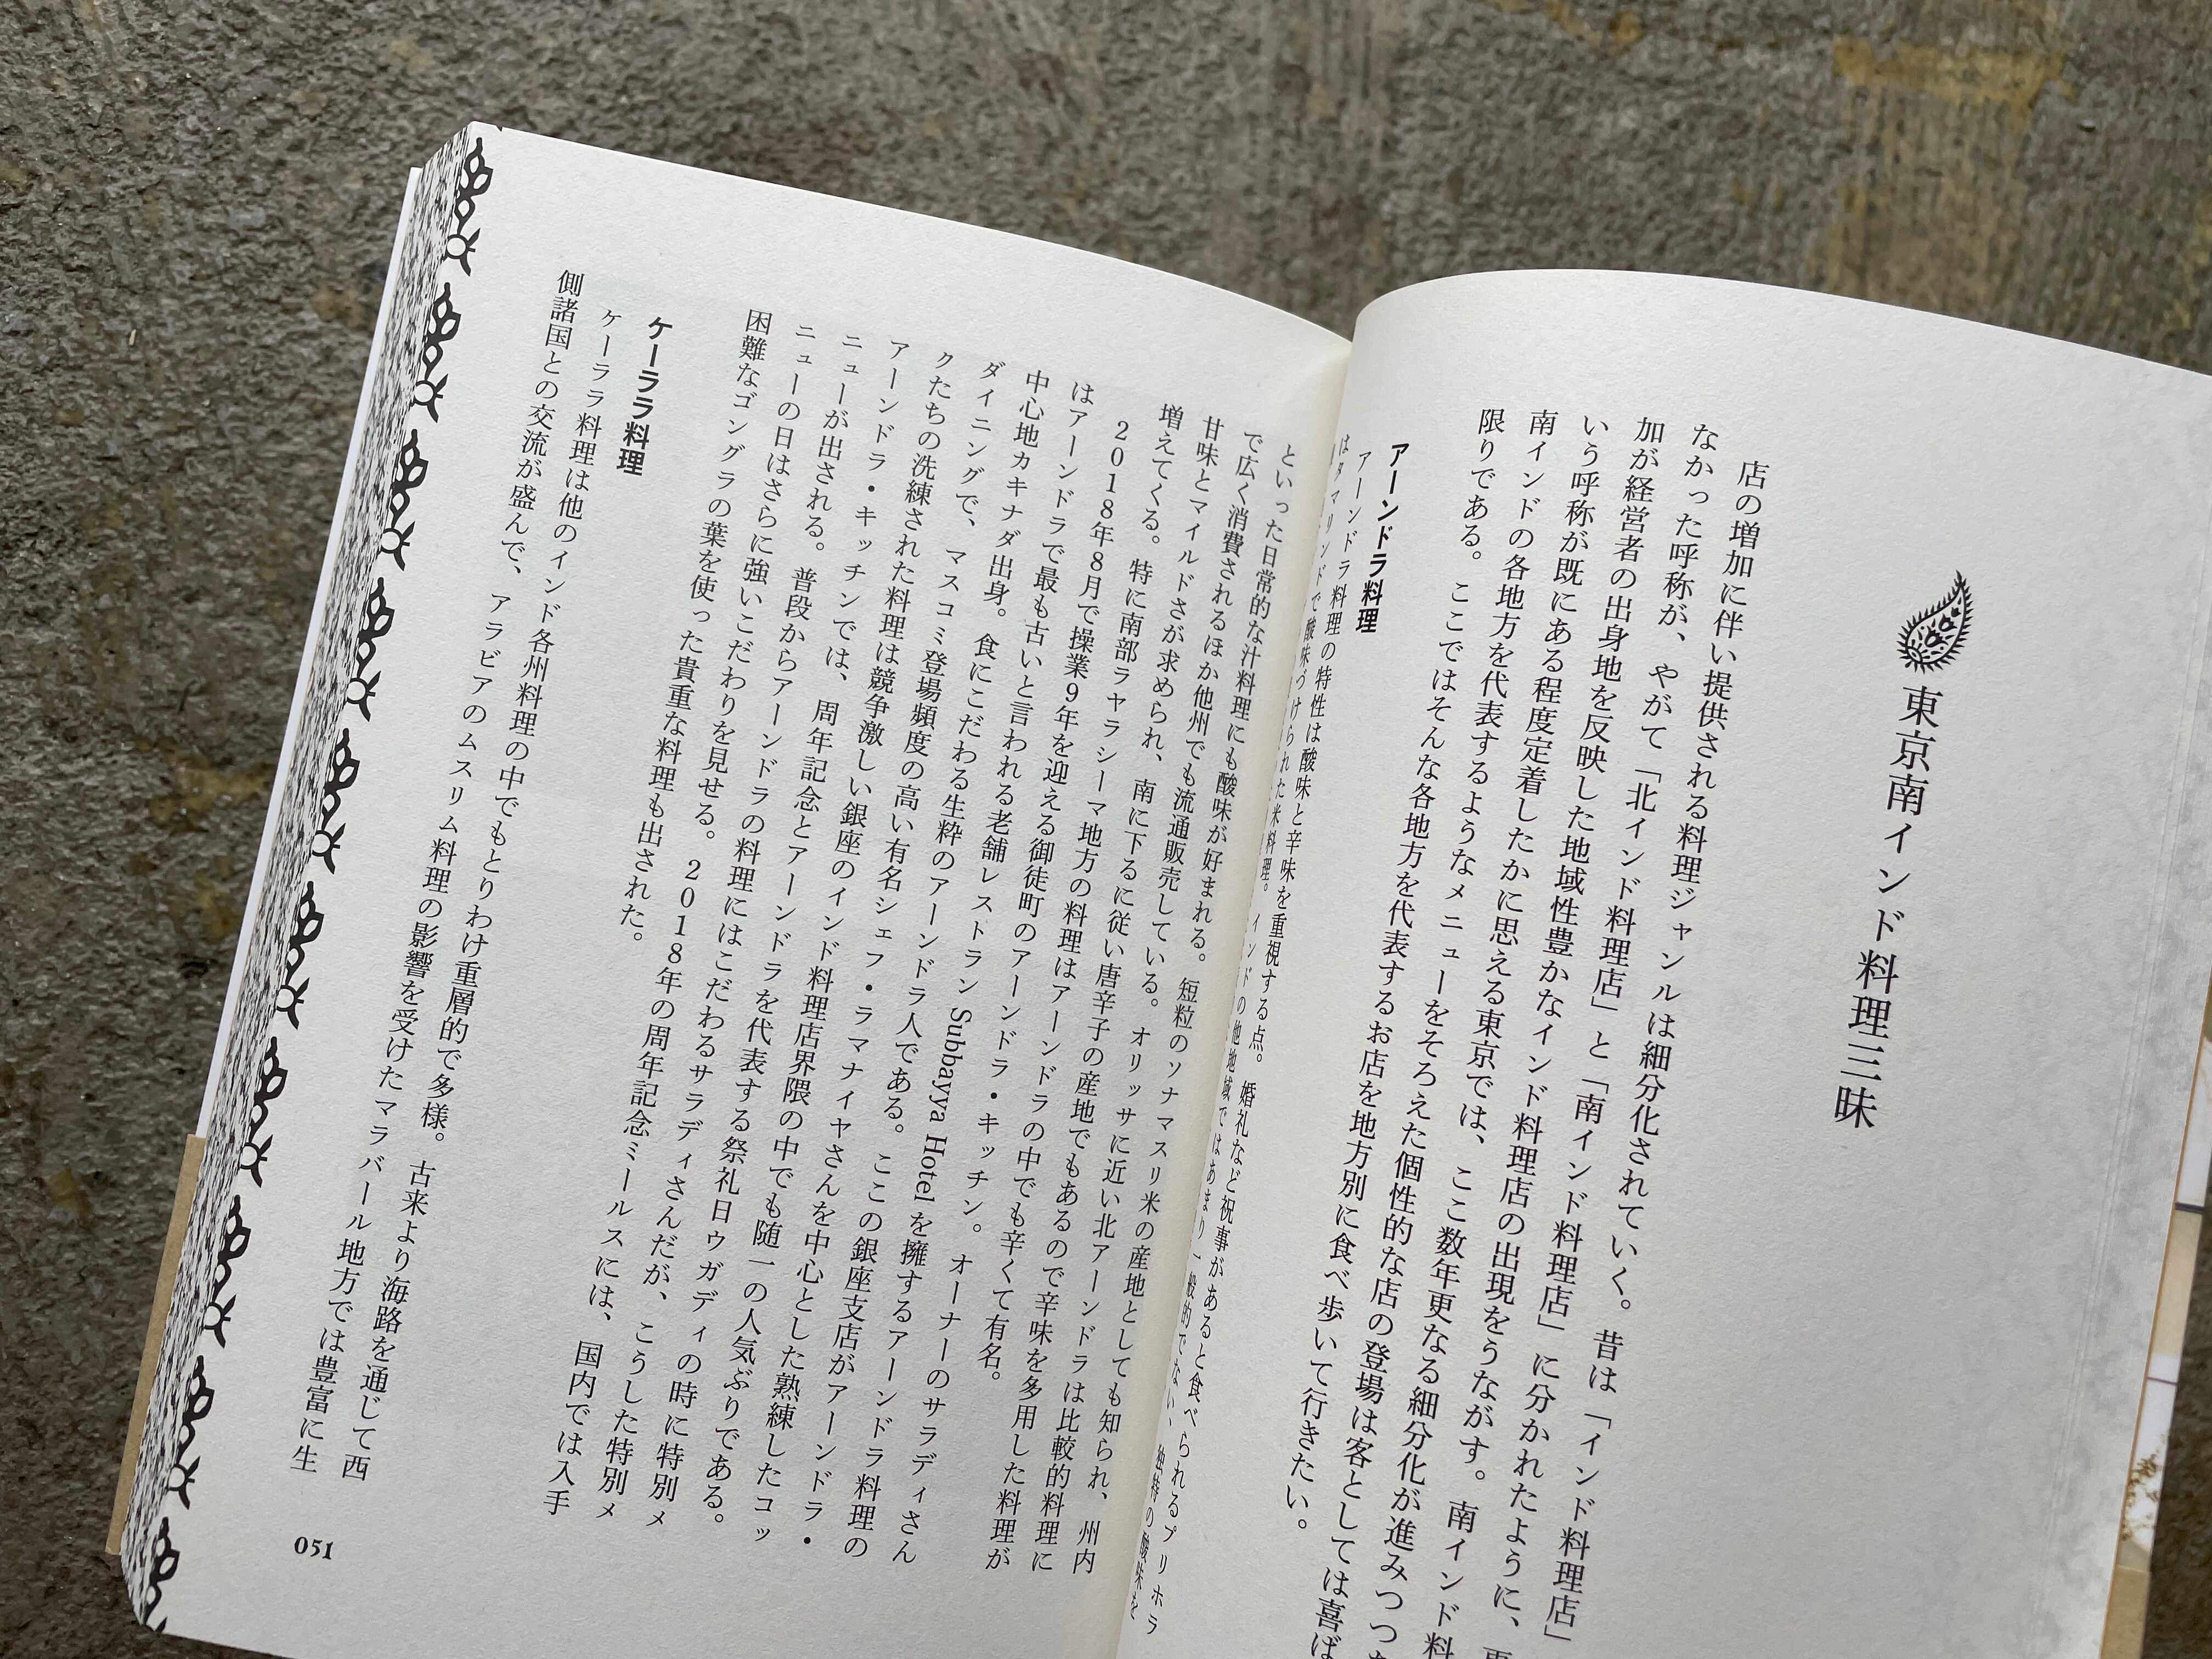 東京南インド料理三昧
店の増加に伴い提供される料理ジャンルは細分化されていく。昔は「インド料理店」
なかった呼称が、やがて「北インド料理店」と「南インド料理店」に分かれたように、
加が経営者の出身地を反映した地域性豊かなインド料理店の出現をうながす。南インド料
いう呼称が既にある程度定着したかに思える東京では、ここ数年更なる細分化が進みつつ
南インドの各地方を代表するようなメニューをそろえた個性的な店の登場は客としては喜ば
限りである。ここではそんな各地方を代表するお店を地方別に食べ歩いて行きたい。
アーンドラ料理
アーンドラ料理の特性は酸味と辛味を重視する点。婚礼など祝事があると食べられるプリホラ
はタマリンドで酸味づけられた米料理。インドの他地域ではあまり一般的でない、独特の酸味を
といった日常的な汁料理にも酸味が好まれる。短粒のソナマスリ米の産地としても知られ、州内
で広く消費されるほか他州でも流通販売している。オリッサに近い北アーンドラは比較的料理に
甘味とマイルドさが求められ、南に下るに従い唐辛子の産地でもあるので辛味を多用した料理が
増えてくる。特に南部ラヤラシーマ地方の料理はアーンドラの中でも辛くて有名。
2018年8月で操業9年を迎える御徒町のアーンドラ・キッチン。オーナーのサラディさん
はアーンドラで最も古いと言われる老舗レストラン Subbayya Hotel を擁するアーンドラ料理の
中心地カキナダ出身。食にこだわる生粋のアーンドラ人である。ここの銀座支店がアーンドラ・
ダイニングで、マスコミ登場頻度の高い有名シェフ・ラマナイヤさんを中心とした熟練したコッ
クたちの洗練された料理は競争激しい銀座のインド料理店界隈の中でも随一の人気ぶりである。
アーンドラ・キッチンでは、周年記念とアーンドラを代表する祭礼日ウガディの時に特別メ
ニューが出される。普段からアーンドラの料理にはこだわるサラディさんだが、こうした特別メ
ニューの日はさらに強いこだわりを見せる。2018年の周年記念ミールスには、国内では入手
困難なゴングラの葉を使った貴重な料理も出された。
ケーララ料理
ケーララ料理は他のインド各州料理の中でもとりわけ重層的で多様。古来より海路を通じて西
側諸国との交流が盛んで、アラビアのムスリム料理の影響を受けたマラバール地方では豊富に生
051